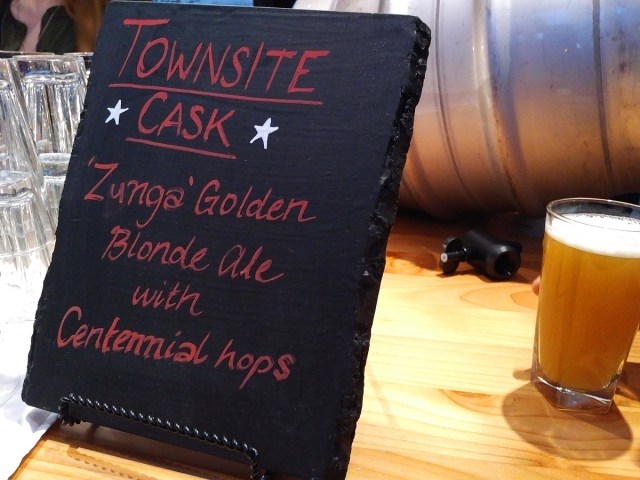 TOWNSITE
CASK
'Zunga' Golden
Blonde Ale
with
Centennial hops